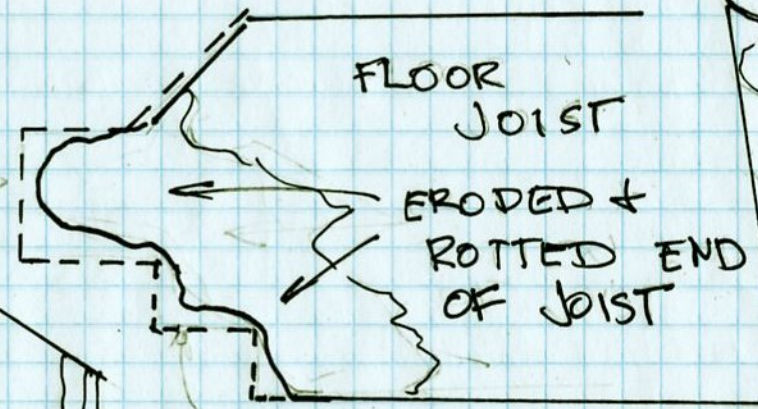 FLOOR
JOIST
ERODED &
ROTTED END
OF JOIST